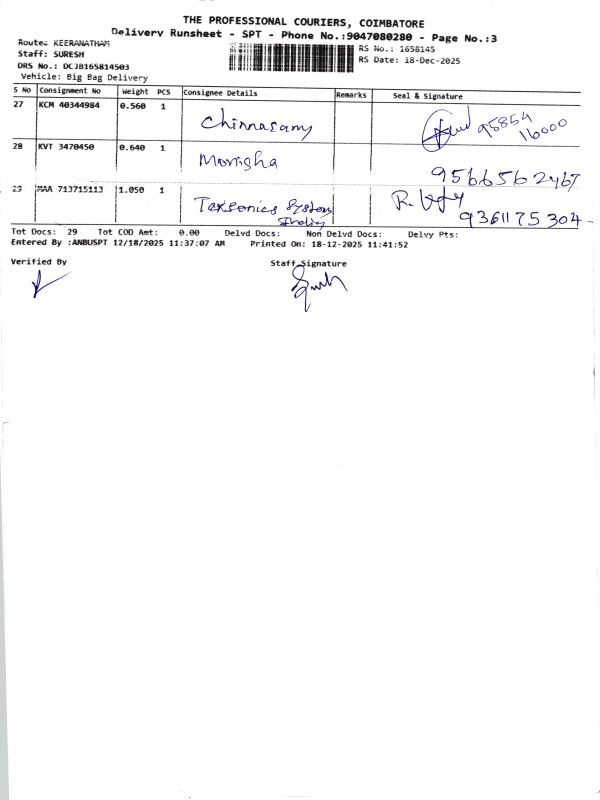 THE PROFESSIONAL COURIERS, COIMBATORE
Delivery Runsheet - SPT - Phone No.:9047080280 - Page No.:3
Route: KEERANATHAM
RS No.: 1658145
Staff: SURESH
RS Date: 18-Dec-2025
DRS No.: DCJB165814503
Vehicle: Big Bag Delivery
S No Consignment No Weight PCS Consignee Details Remarks Seal & Signature
27 KCM 40344984 0.560 1 Chinnasamy 95854
16000
28 KVT 3470450 0.640 1 Monigha 9566562467
29 MAA 713715113 1.050 1 Texsonics Systems R.
India 9361175304
Tot Docs: 29 Tot COD Amt: 0.00 Delvd Docs: Non Delvd Docs: Delvy Pts:
Entered By :ANBUSPT 12/18/2025 11:37:07 AM Printed On: 18-12-2025 11:41:52
Verified By Staff Signature